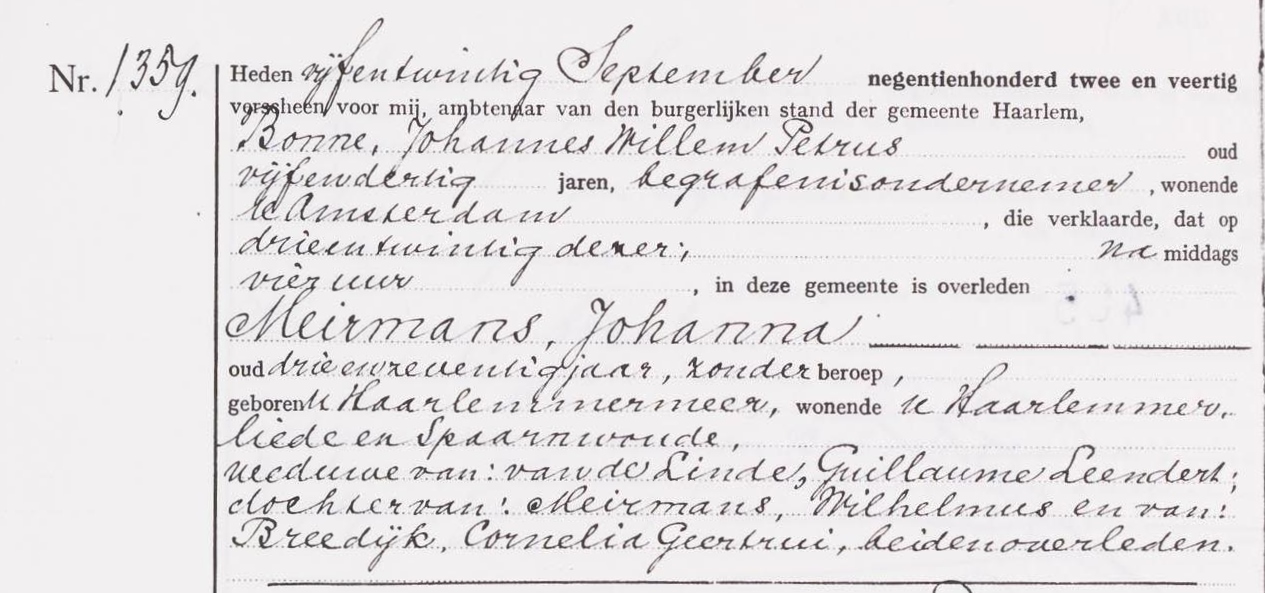 Nr. 1359. Heden vijfentwintig September negentienhonderd twee en veertig
verscheen voor mij, ambtenaar van den burgerlijken stand der gemeente Haarlem,
Bonne, Johannes Willem Petrus oud
vijfendertig jaren, begrafenisondernemer, wonende
te Amsterdam, die verklaarde, dat op
drieentwintig dezer, namiddags
vier uur, in deze gemeente is overleden
Meirmans, Johanna
oud drieenzeventig jaar, zonder beroep,
geboren te Haarlemmermeer, wonende te Haarlemmer-
liede en Spaarnwoude,
weduwe van: van de Linde, Guillaume Leendert;
dochter van: Meirmans, Wilhelmus en van:
Breedijk, Cornelia Geertrui, beiden overleden.